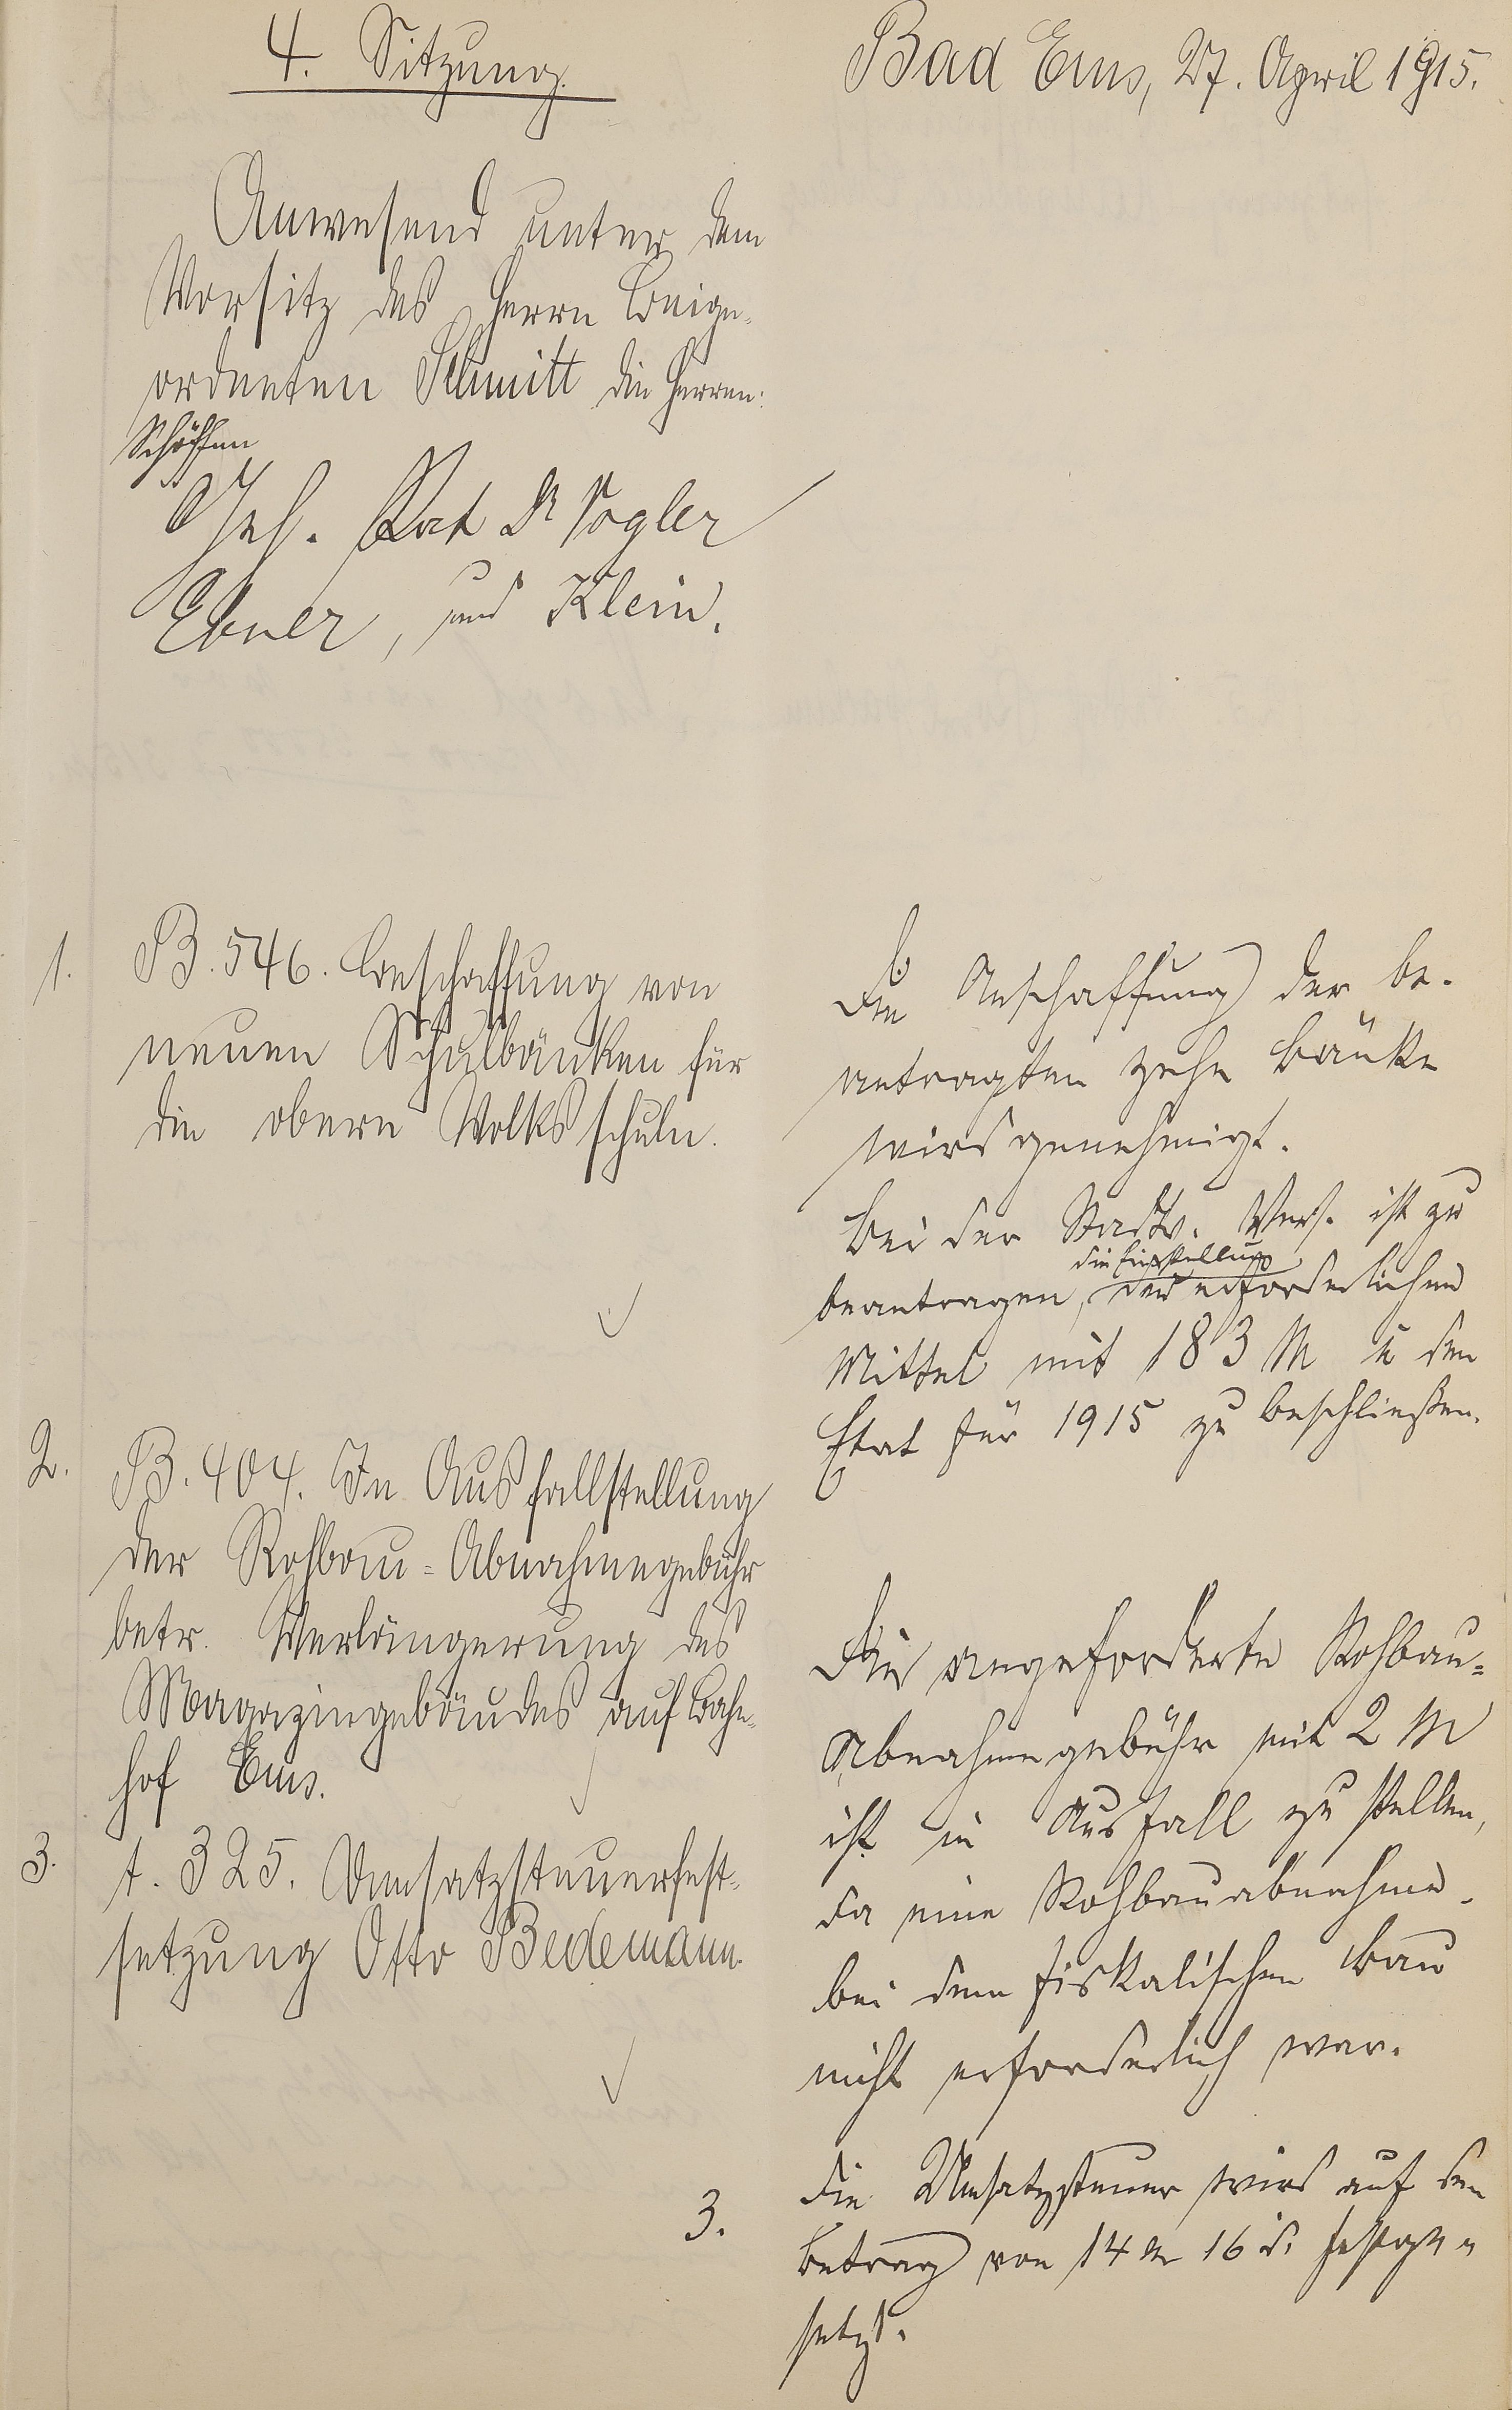 4. Sitzung.
Bad Ems, 27. April 1915.
Anwesend unter dem
Vorsitz des Herrn Beige-
ordneten Schmitt die Herren:
Schöffen
Geh. Rat Dr Vogler
Ebner, und Klein.
1. B. 546. Beschaffung von
neuen Schulbänken für
die obere Volksschule.
Die Anschaffung der be-
antragten zehn Bänke
wird genehmigt.
Bei der Stadtv. Vers. ist zu
beantragen, die Einstellung der erforderlichen
Mittel mit 183 M in den
Etat für 1915 zu beschließen.
2. B. 404. In Ausfallstellung
der Rohbau-Abnahmegebühr
betr. Verlängerung des
Magazingebäudes auf Bahn-
hof Ems.
Die angeforderte Rohbau-
Abnahmegebühr mit 2 M
ist in Ausfall zu stellen,
da eine Rohbauabnahme
bei dem fiskalischen Bau
nicht erforderlich war.
3. t. 325. Umsatzsteuerfest-
setzung Otto Bedemann.
3. Die Umsatzsteuer wird auf den
Betrag von 14 M 16 d. festge-
setzt.